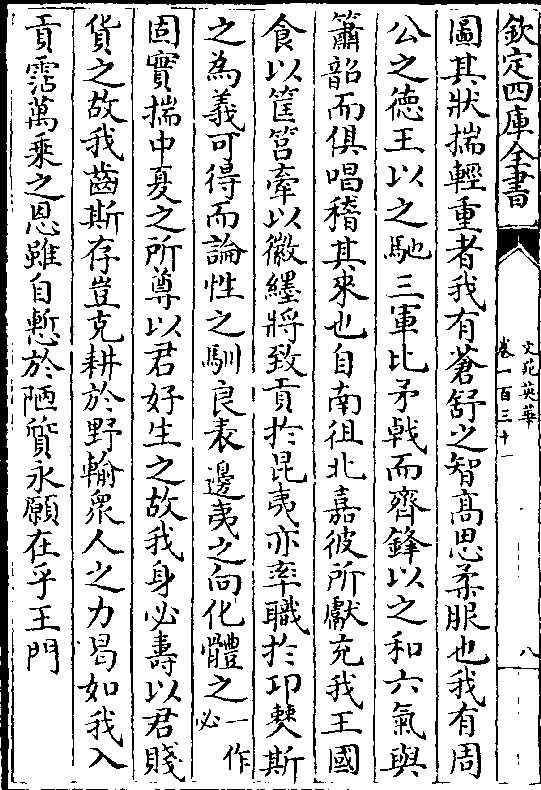 欽定四庫全書
文苑英華
卷一百三十一
八
圖其狀揣輕重者我有蒼舒之智高思柔服也我有周
公之德王以之馳三軍比矛戟而齊鋒以之和六氣與
簫韶而俱唱稽其來也自南徂北嘉彼所獻充我王國
食以筐筥牽以徽纆將致貢於昆夷亦率職於邛僰斯
之為義可得而論性之馴良表邊夷之向化體之一作必
固實揣中夏之所尊以君好生之故我身必壽以君賤
貨之故我齒斯存豈克耕於野輸衆人之力曷如我入
貢霑萬乘之恩雖自慙於陋質永願在乎王門